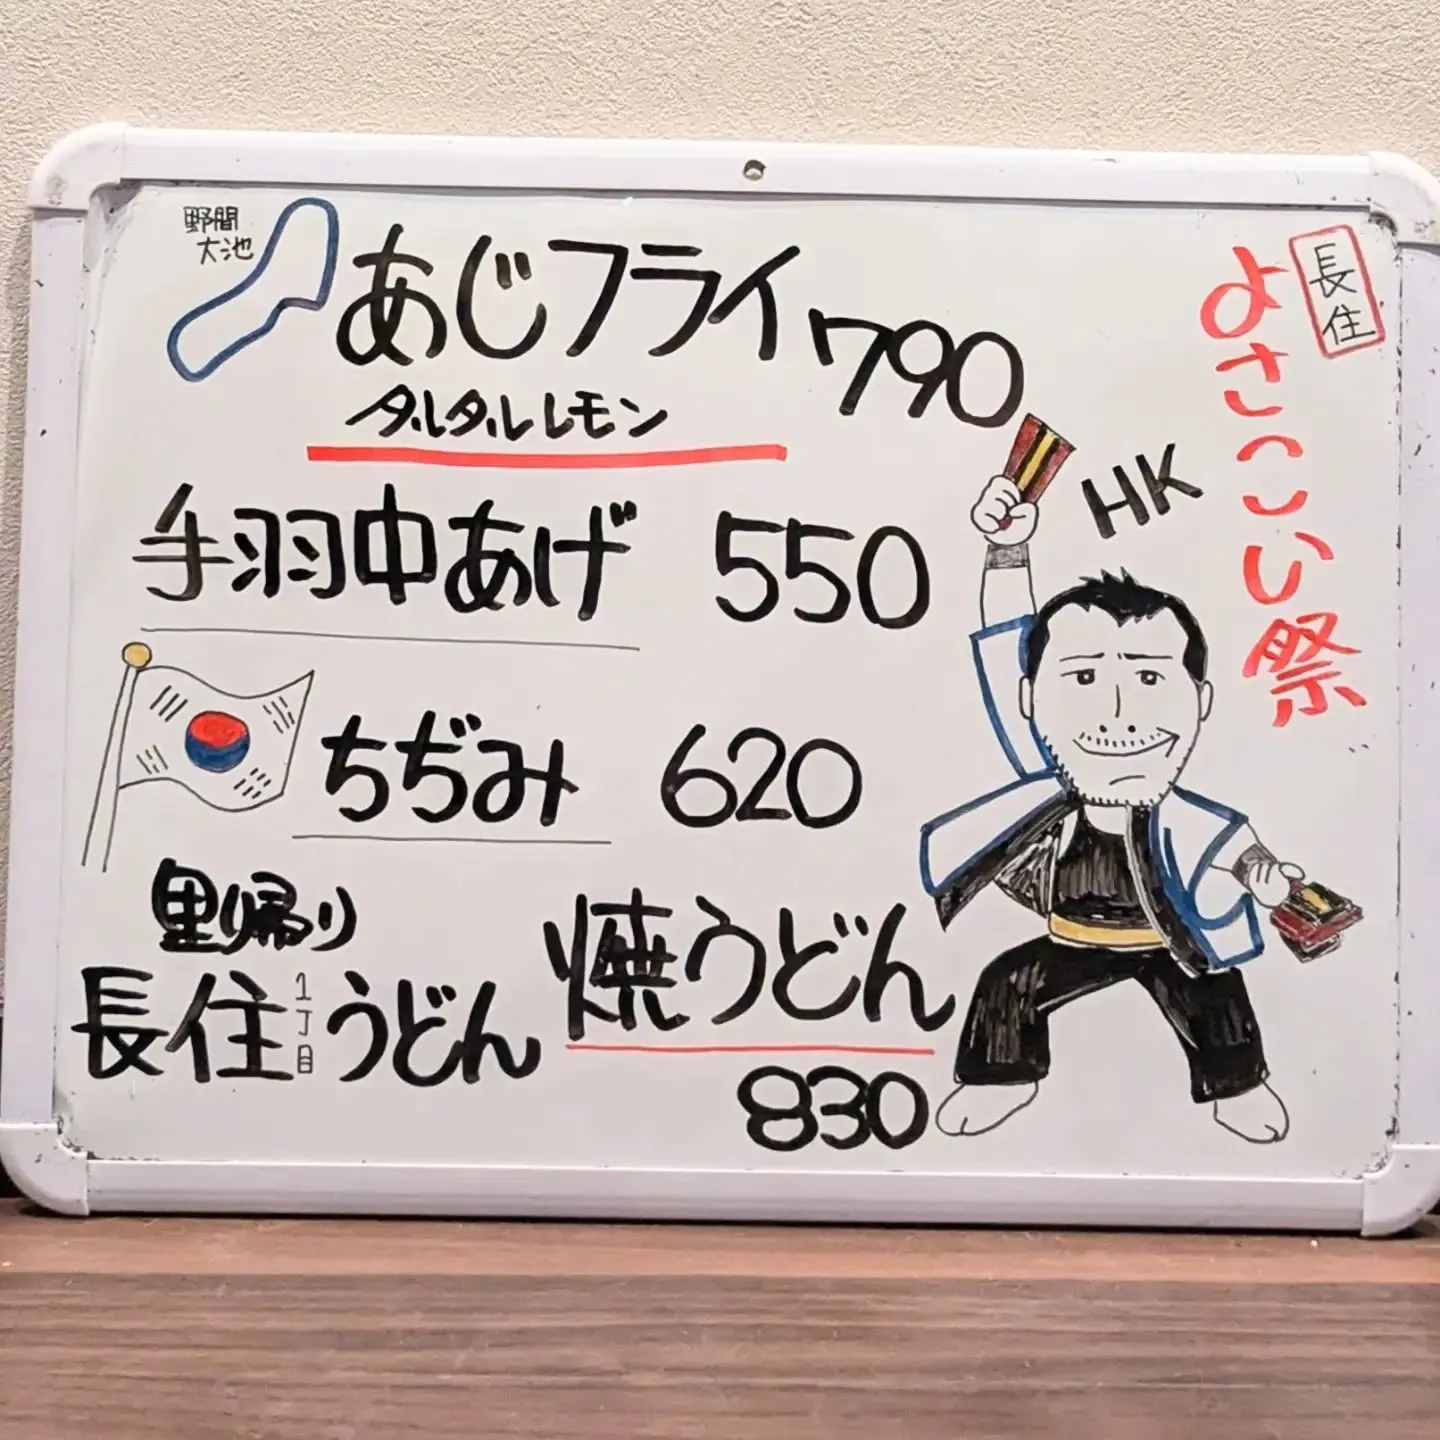 野間
大池
あじフライ 790
タルタルレモン
長住
よさこい祭
HK
手羽中あげ 550
ちぢみ 620
里帰り
長住1丁目うどん
焼うどん
830